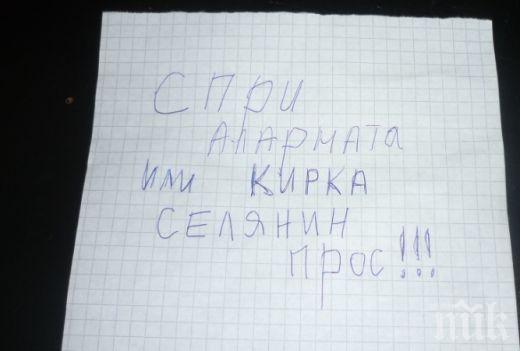 СПРИ
АЛАРМАТА
ИЛИ КИРКА
СЕЛЯНИН
ПРОС!!!
пік